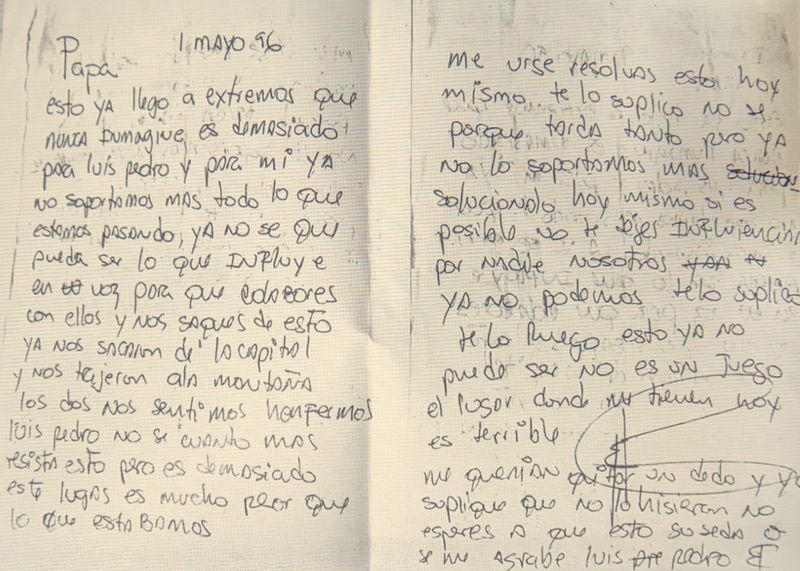 1 MAYO 96
Papa
esto ya llego a extremos que
nunca inmagine es demasiado
para luis pedro y para mi ya
no soportamos mas todo lo que
estamos pasando, ya no se que
pueda ser lo que influye
en voz para que colabores
con ellos y nos saques de esto
ya nos sacaron de la capital
y nos trajeron ala montaña
los dos nos sentimos henfermos
luis pedro no se cuanto mas
resista esto pero es demasiado
este lugas es mucho peor que
lo que estabamos
me urse resolvas esto hoy
mismo te lo suplico no se
porque tarda tanto pero ya
no lo soportamos mas
solucionalo hoy mismo si es
posible no te dejes influienciar
por nadie nosotros
ya no podemos telo suplico
te lo Ruego esto ya no
puede ser no es un juego
el lugar donde me tienen hoy
es terrible
me querian quitar un dedo y yo
suplique que no lo hisieran no
esperes a que esto suseda o
se me agrabe luis pedro